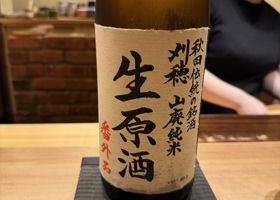 秋田伝統の銘酒
刈穂
山廃純米
生原酒
番外品